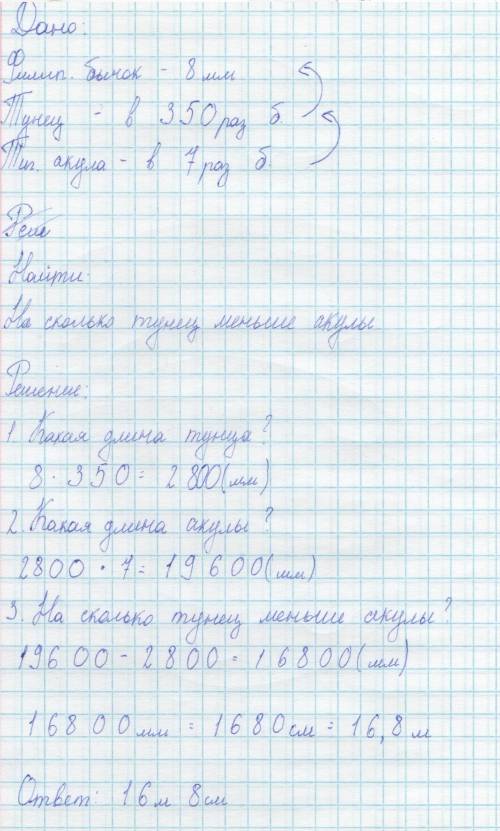 Дано:
Филип. бычок - 8 мм
Тунец - в 350 раз б.
Тиг. акула - в 7 раз б.
Реш
Найти:
На сколько тунец меньше акулы
Решение:
1. Какая длина тунца?
8 · 350 = 2800 (мм)
2. Какая длина акулы?
2800 · 7 = 19600 (мм)
3. На сколько тунец меньше акулы?
19600 - 2800 = 16800 (мм)
16800 мм = 1680 см = 16,8 м
Ответ: 16 м 8 см